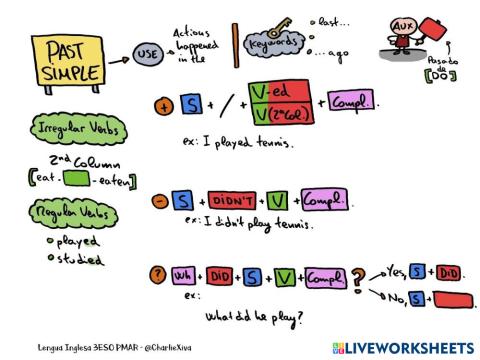 PAST SIMPLE
USE
Actions happened in the
Keywords
last...
...ago
AUX
Pasado de [DO]
+ S + / + V-ed + Compl.
V(2ªCol.)
ex: I played tennis.
Irregular Verbs
2nd Column
[eat - - eaten]
Regular Verbs
played
studied
- S + DIDN'T + V + Compl.
ex: I didn't play tennis.
? Wh + DID + S + V + Compl. ?
Yes, S + DID.
No, S +
ex:
What did he play?
Lengua Inglesa 3ESO PMAR - @CharlieXiva
LIVEWORKSHEETS